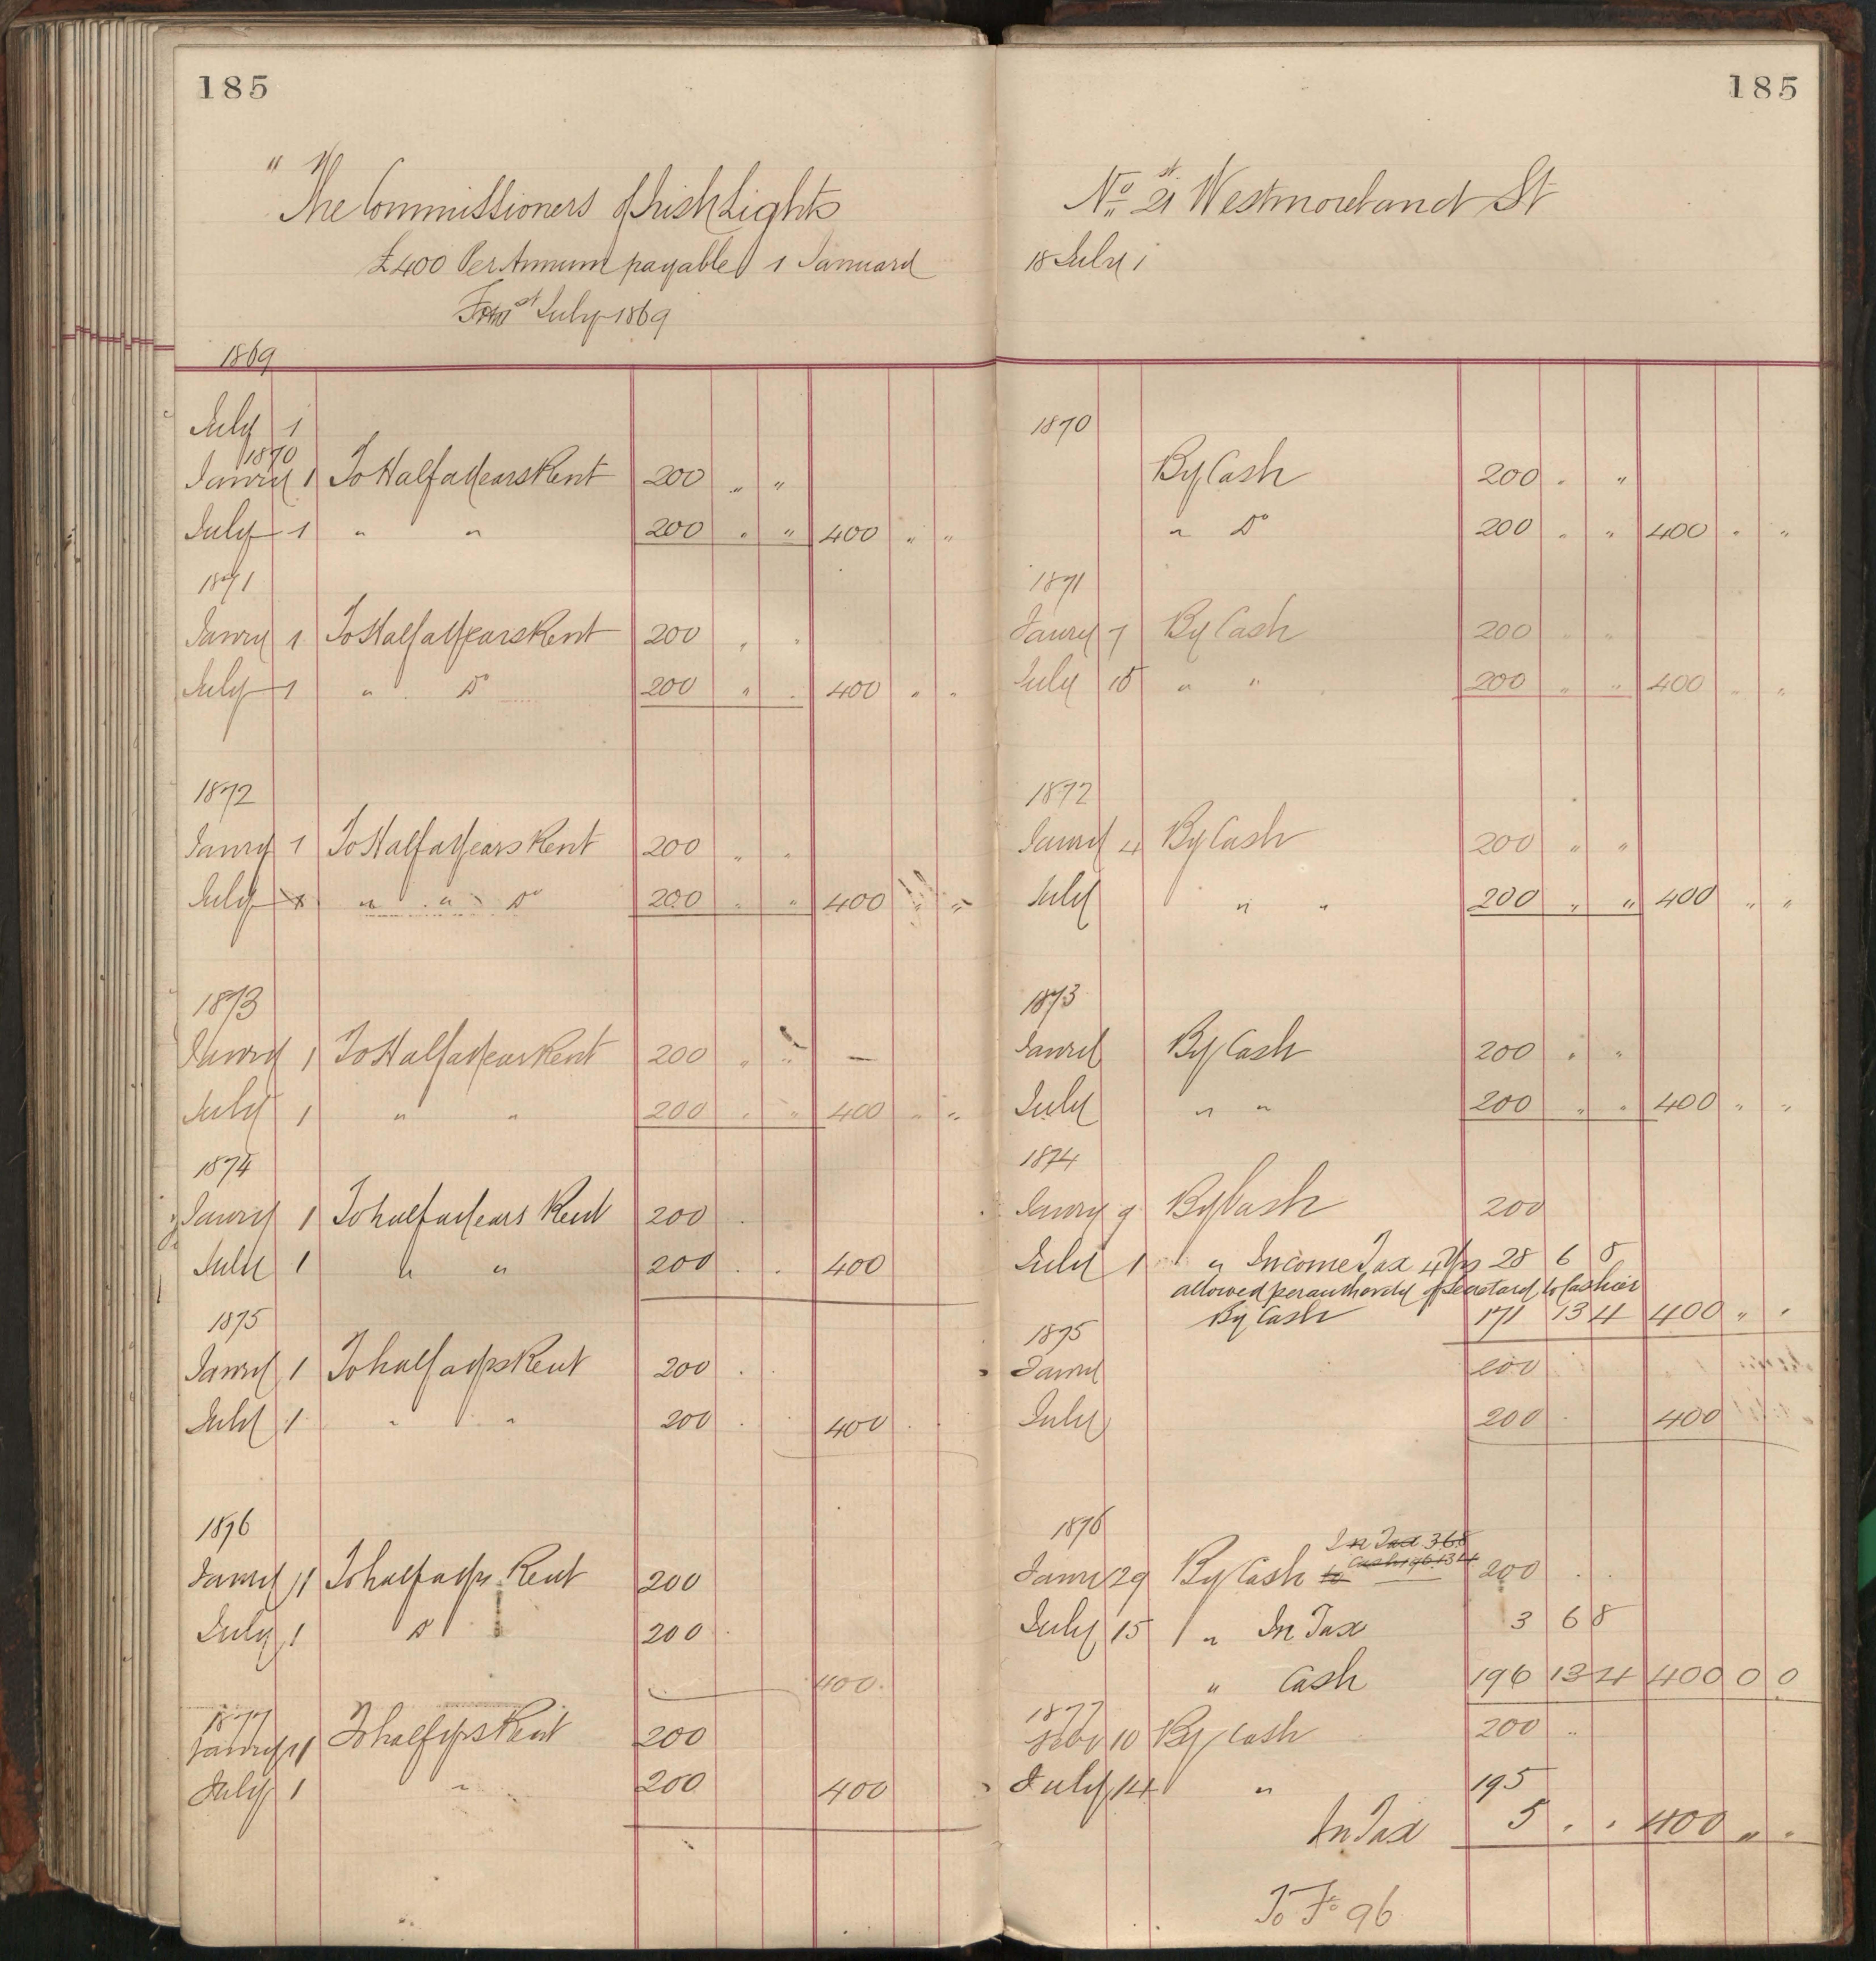 185
" The Commissioners of Irish Lights
£400 Per Annum payable 1 January
From 1st July 1869
1869
July 1
1870
Janry 1 To Half a Years Rent 200 " "
July 1 " " 200 " " 400 " "
1871
Janry 1 To Half a Years Rent 200 " "
July 1 " Do 200 " " 400 " "
1872
Janry 1 To Half a Years Rent 200 " "
July 1 " " Do 200 " " 400 " "
1873
Janry 1 To Half a Years Rent 200 " " —
July 1 " " 200 " " 400 " "
1874
Janry 1 To half a Years Rent 200 .
July 1 " " 200 . . 400
1875
Janry 1 To half a yrs Rent 200 . .
July 1 " " 200 . . 400 . .
1876
Janry 1 To half a yrs Rent 200
July 1 Do 200 .
400
1877
Janry 1 To half yrs Rent 200
July 1 " 200 400
185
No 21 Westmoreland St
18 July 1
1870
By Cash 200 " "
" Do 200 " " 400 " "
1871
Janry 7 By Cash 200 " "
July 15 " " 200 " " 400 " "
1872
Janry 4 By Cash 200 " "
July " " 200 " " 400 " "
1873
Janry By Cash 200 " "
July " " 200 " " 400 " "
1874
Janry 9 By Cash 200
July 1 " Income Tax 4 Yrs 28 6 8
allowed per authority of Secretary to Cashier
By Cash 171 13 4 400 " "
1875
Janry 200
July 200 400
1876
In Tax 3 6 8
Cash 196 13 4
Janry 29 By Cash to 200 . .
July 15 " In Tax 3 6 8
" Cash 196 13 4 400 0 0
1877
Feby 10 By Cash 200 "
July 14 " 195
In Tax 5 " " 400 " "
To Fo 96